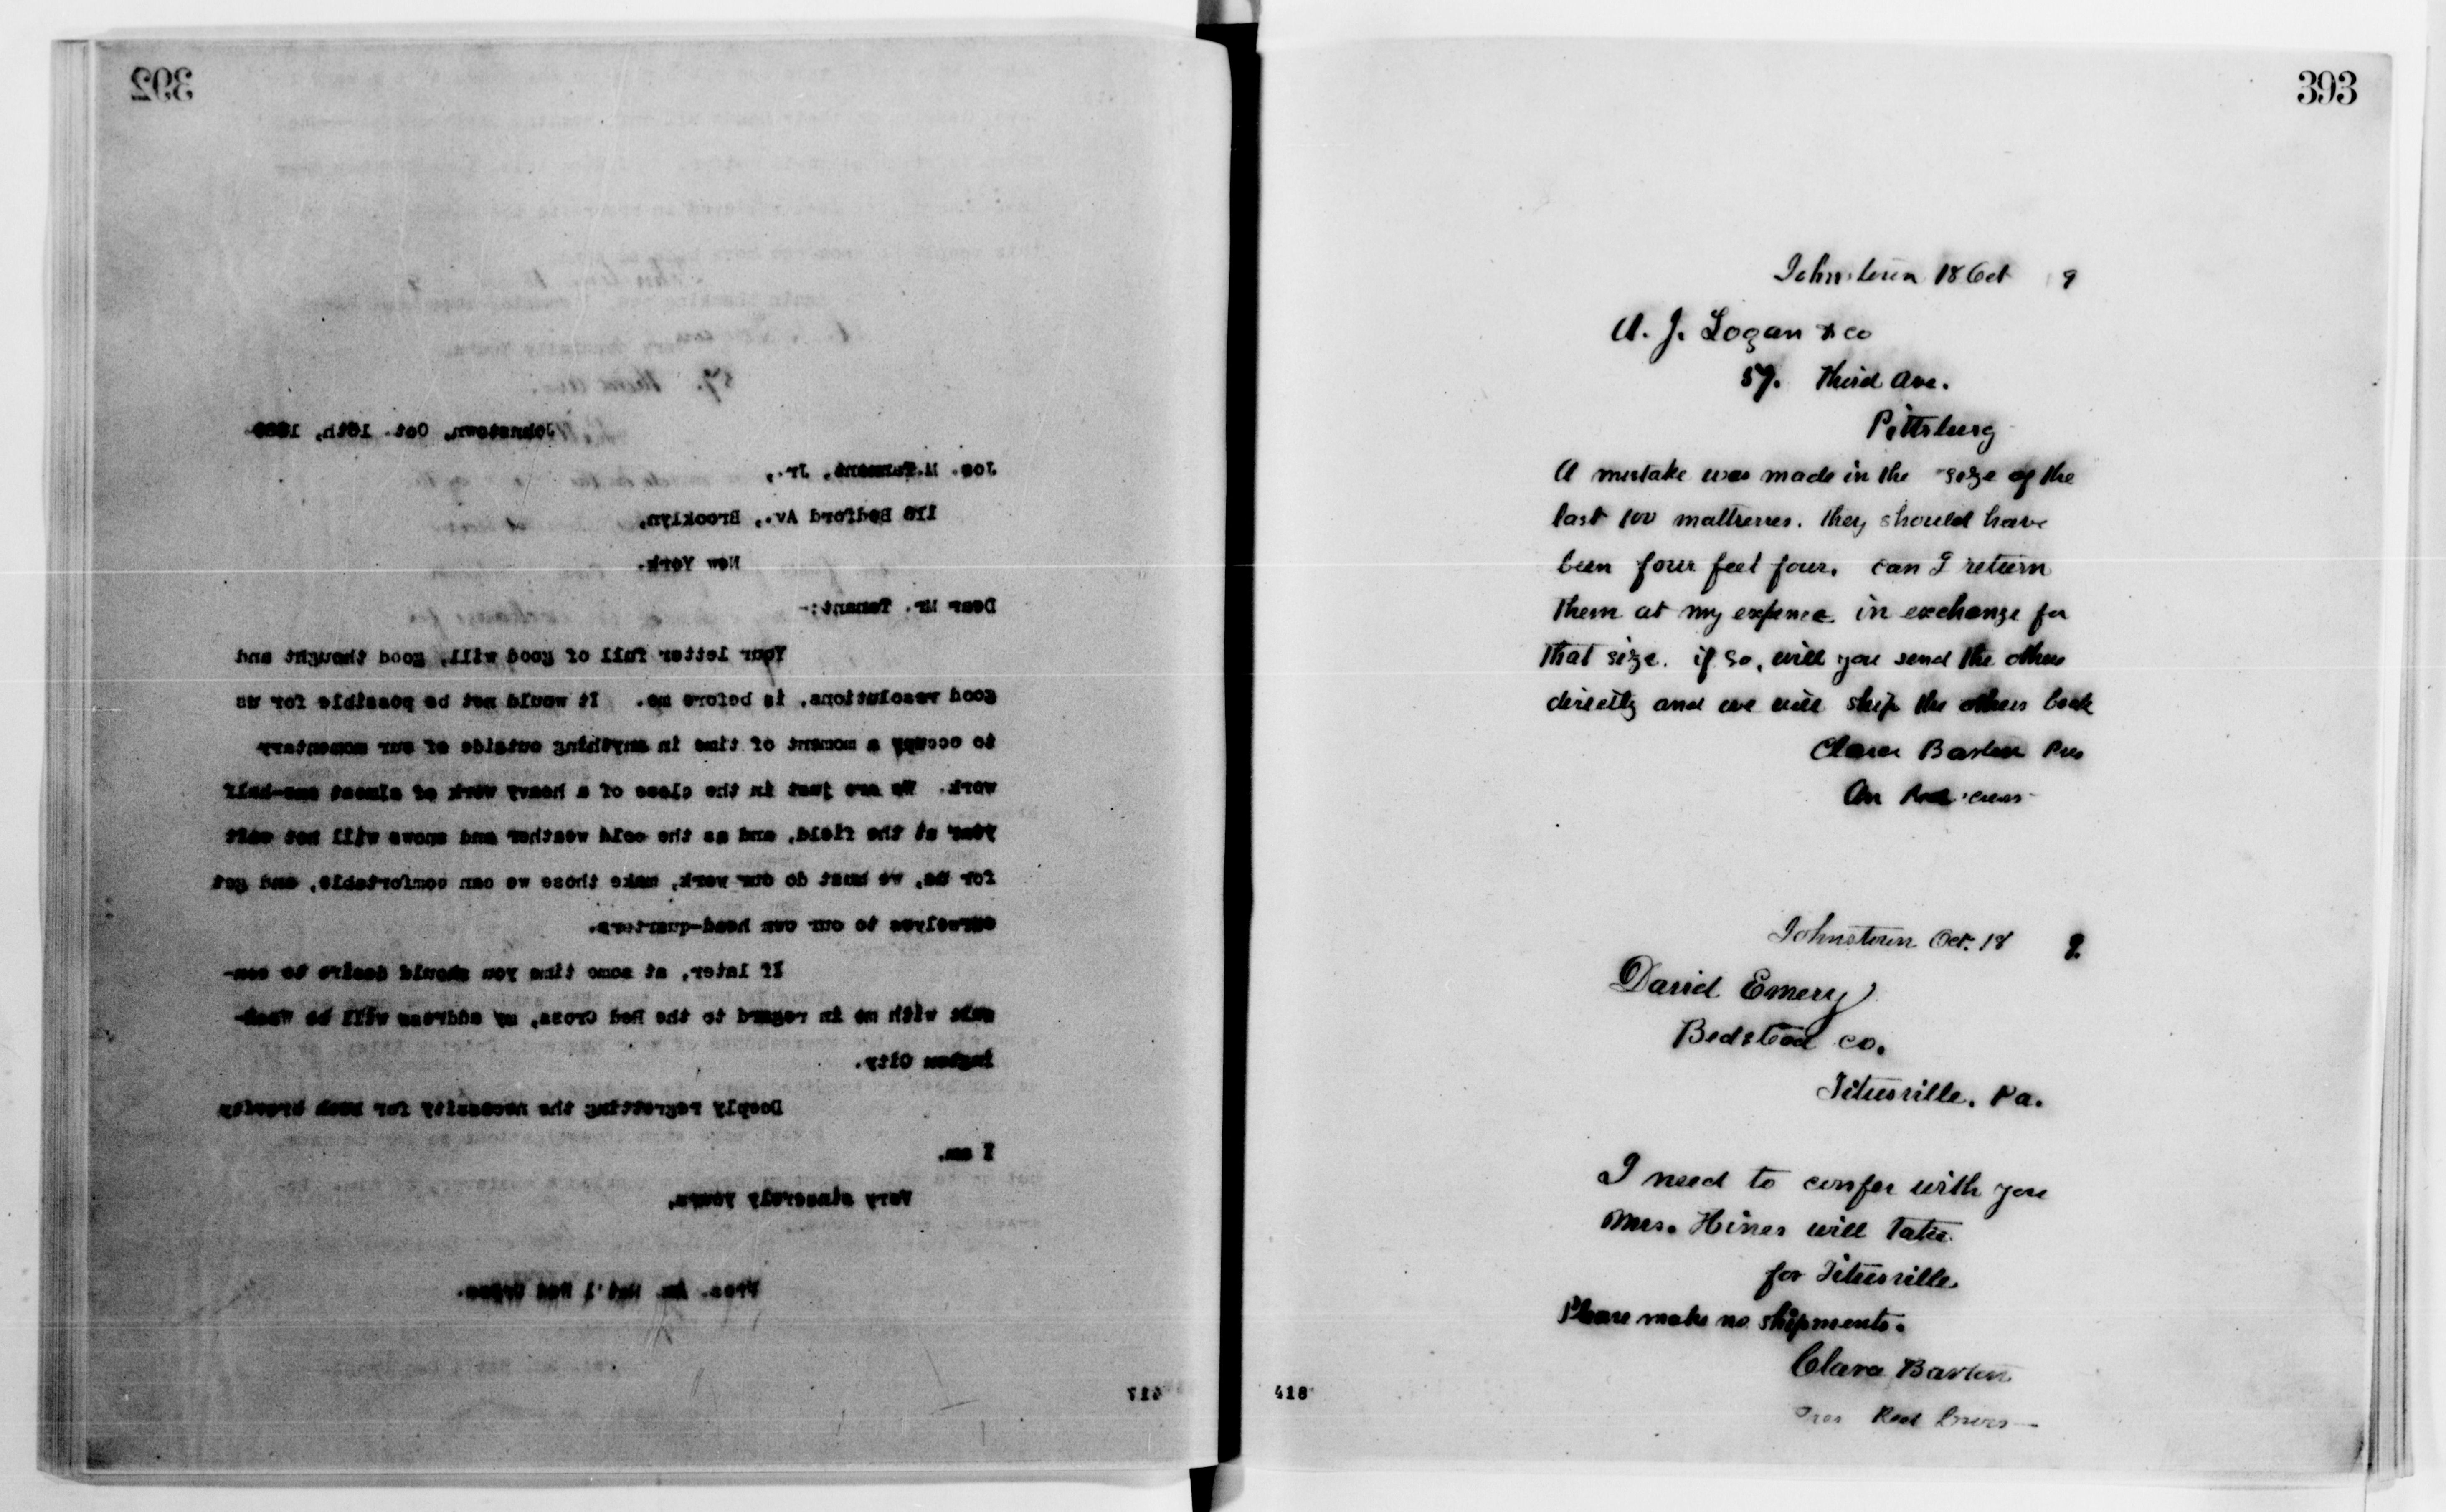 392
Johnstown, Oct. 18th, 1889
Jos. M. Tumant, Jr.,
178 Bedford Av., Brooklyn,
New York.
Dear Mr. Tamant:-
Your letter full of good will, good thought and
good resolutions, is before me. It would not be possible for us
to occupy a moment of time in anything outside of our momentary
work. We are just in the close of a heavy work of almost one-half
year at the field, and as the cold weather and snows will not wait
for us, we must do our work, make those we can comfortable, and get
ourselves to our own head-quarters.
If later, at some time you should desire to con-
sult with me in regard to the Red Cross, my address will be Wash-
ington City.
Deeply regretting the necessity for such brevity
I am,
Very sincerely yours,
Pres. Am. Nat'l Red Cross.
417
393
Johnstown 18 Oct 9
A. J. Logan & co
57. Third Ave.
Pittsburg
A mistake was made in the size of the
last 100 mattresses. they should have
been four feet four. can I return
them at my expence in exchange for
that size. if so, will you send the others
directly and we will ship the others back
Clara Barton Pres
Am Red cross
Johnstown Oct. 18 9
David Emery
Bedstead co.
Titusville, Pa.
I need to confer with you
Mrs. Hines will take
for Titusville
Please make no shipments.
Clara Barton
Pres Red Cross
418